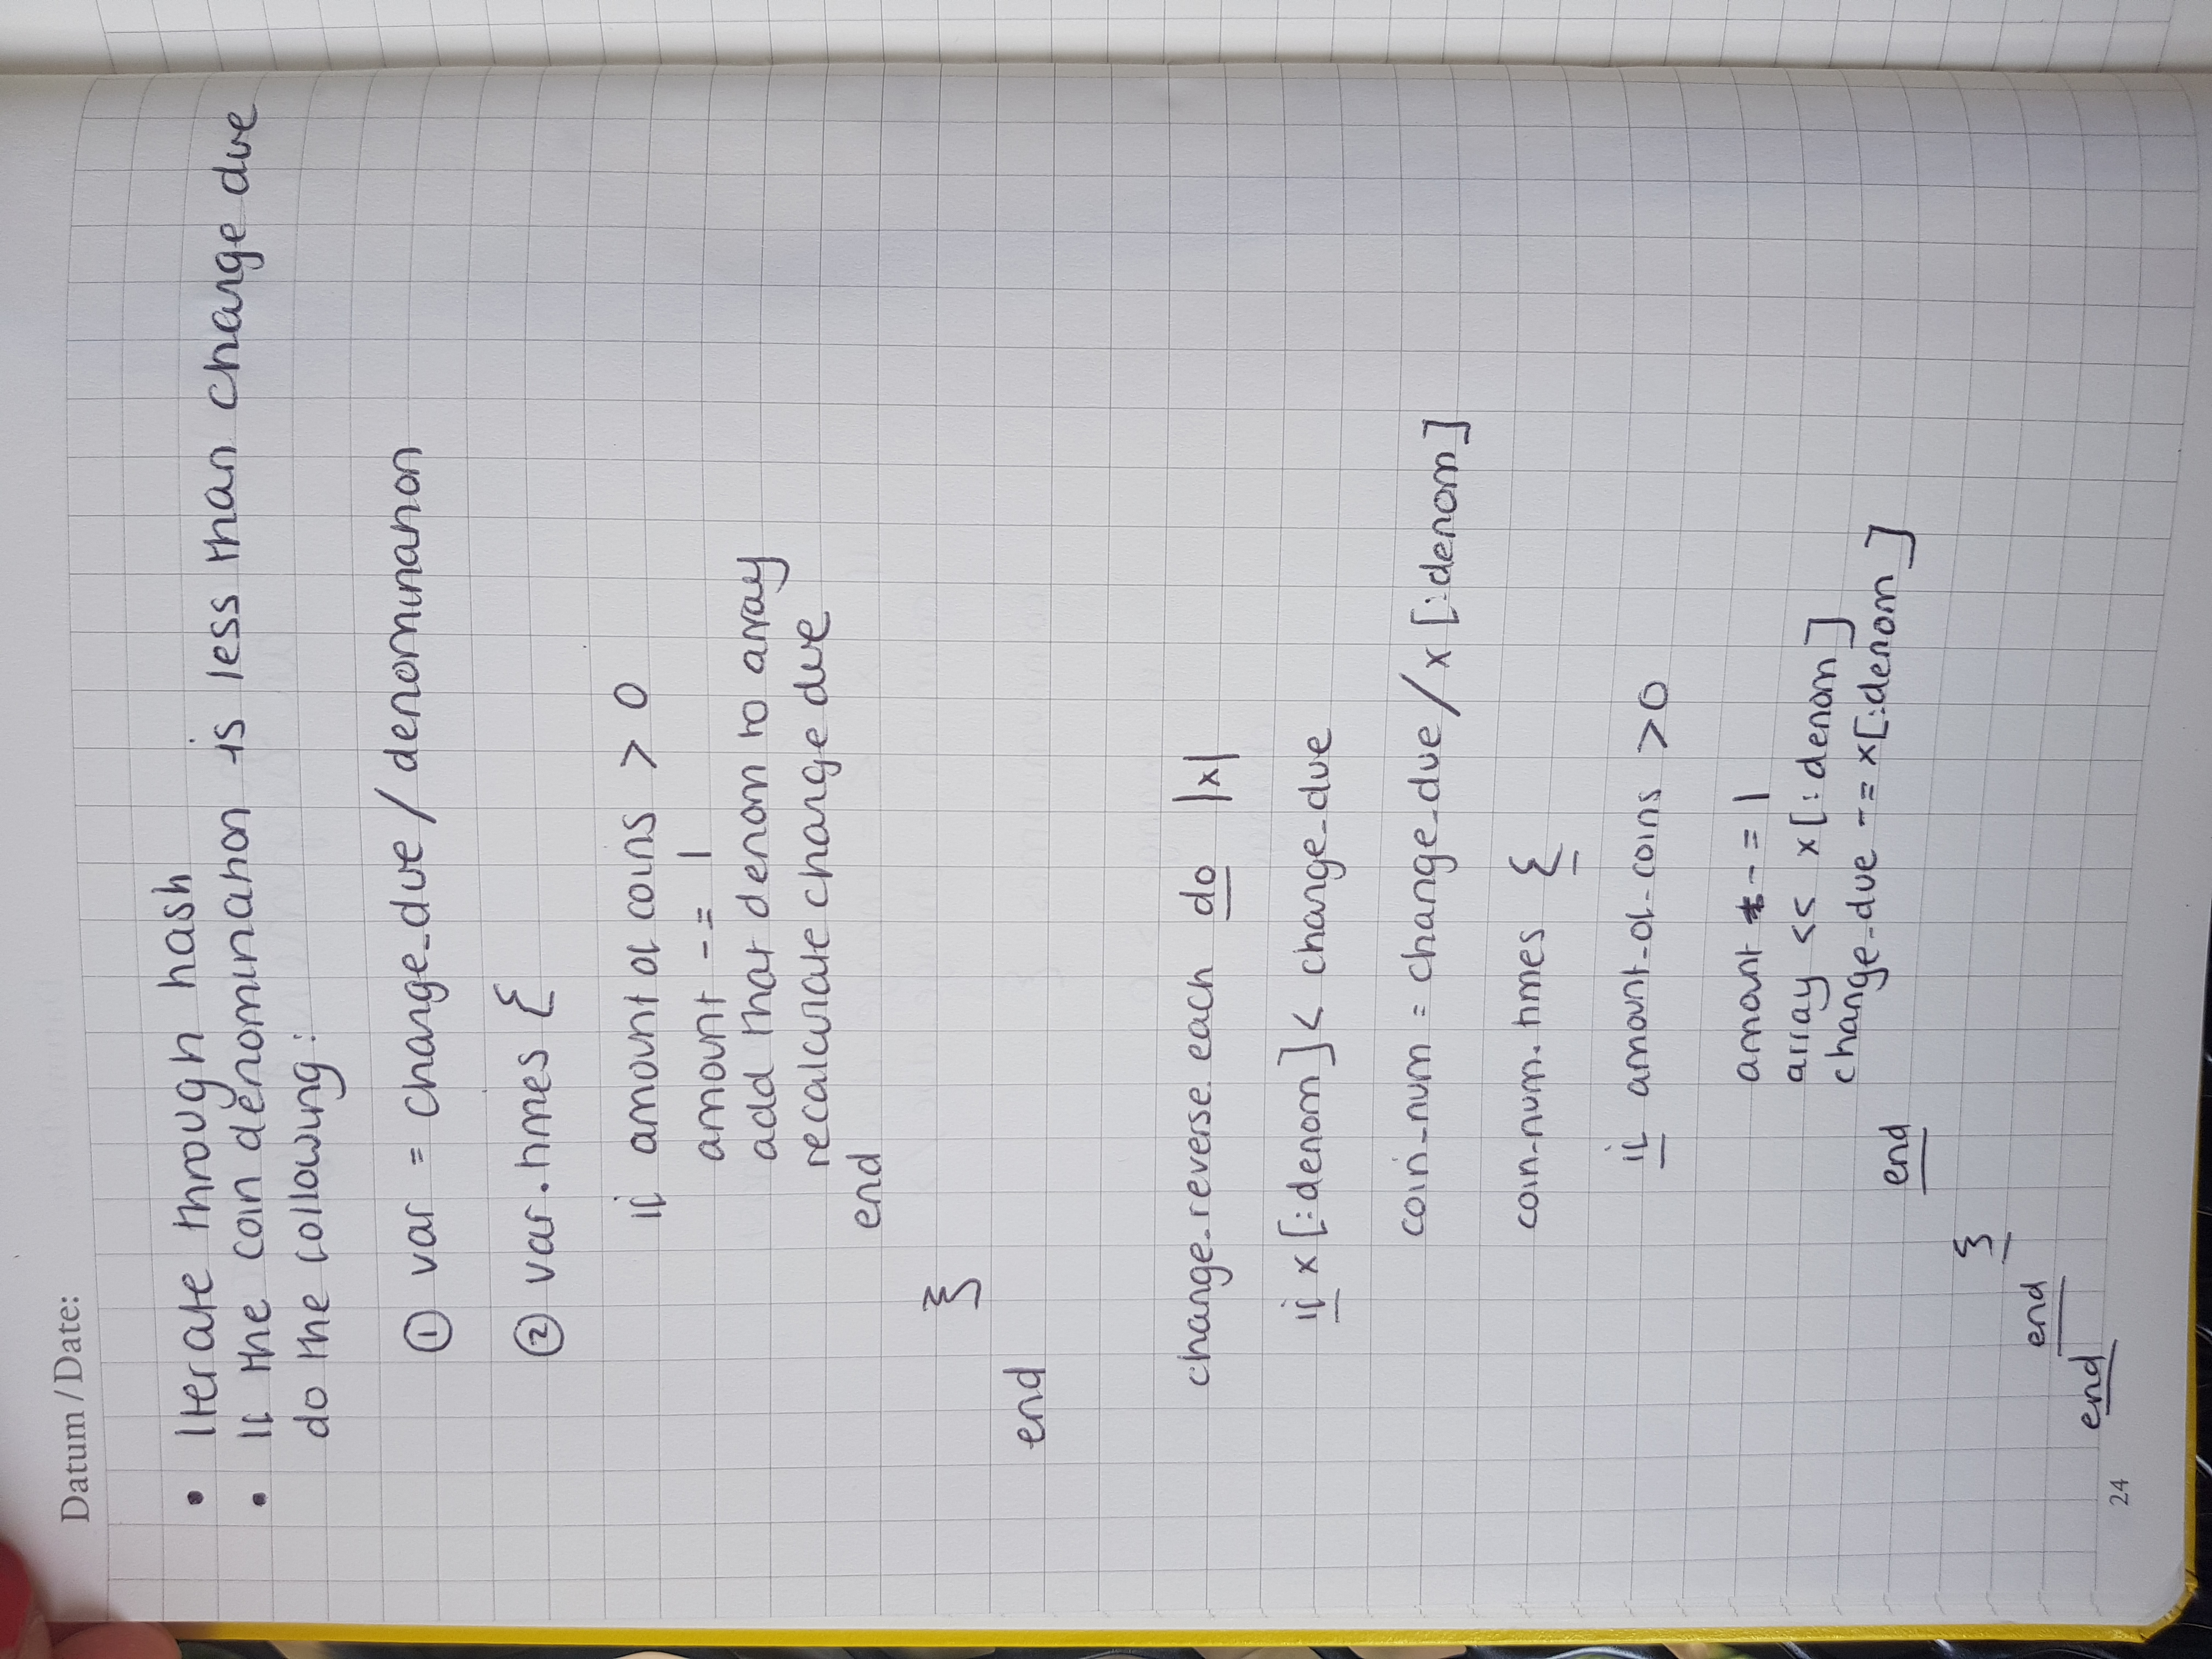 Datum / Date:
• Iterate through hash
• If the coin denomination is less than change due
do the following:
① var = change_due / denomination
② var.times {
if amount of coins > 0
amount -= 1
add that denom to array
recalculate change due
end
}
end
change.reverse.each do |x|
if x [:denom] < change_due
coin_num = change_due / x [:denom]
coin_num.times {
if amount_of_coins > 0
amount -= 1
array << x[:denom]
change_due -= x[:denom]
end
}
end
end
24